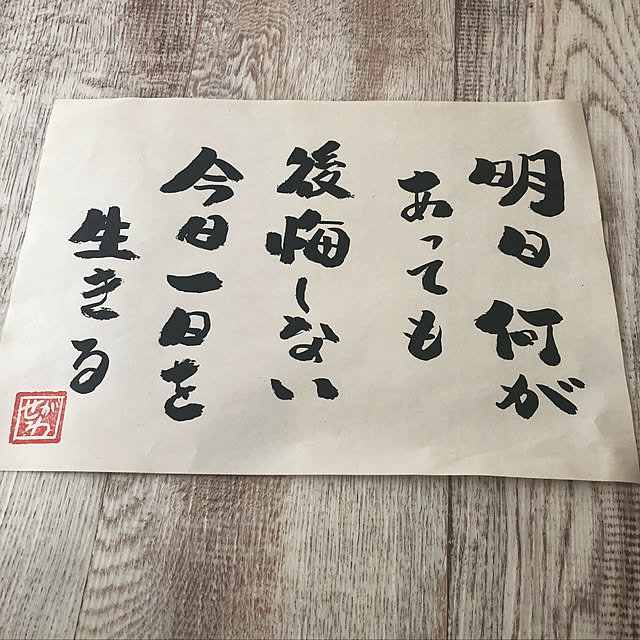 明日何が
あっても
後悔しない
今日一日を
生きる
せがわ